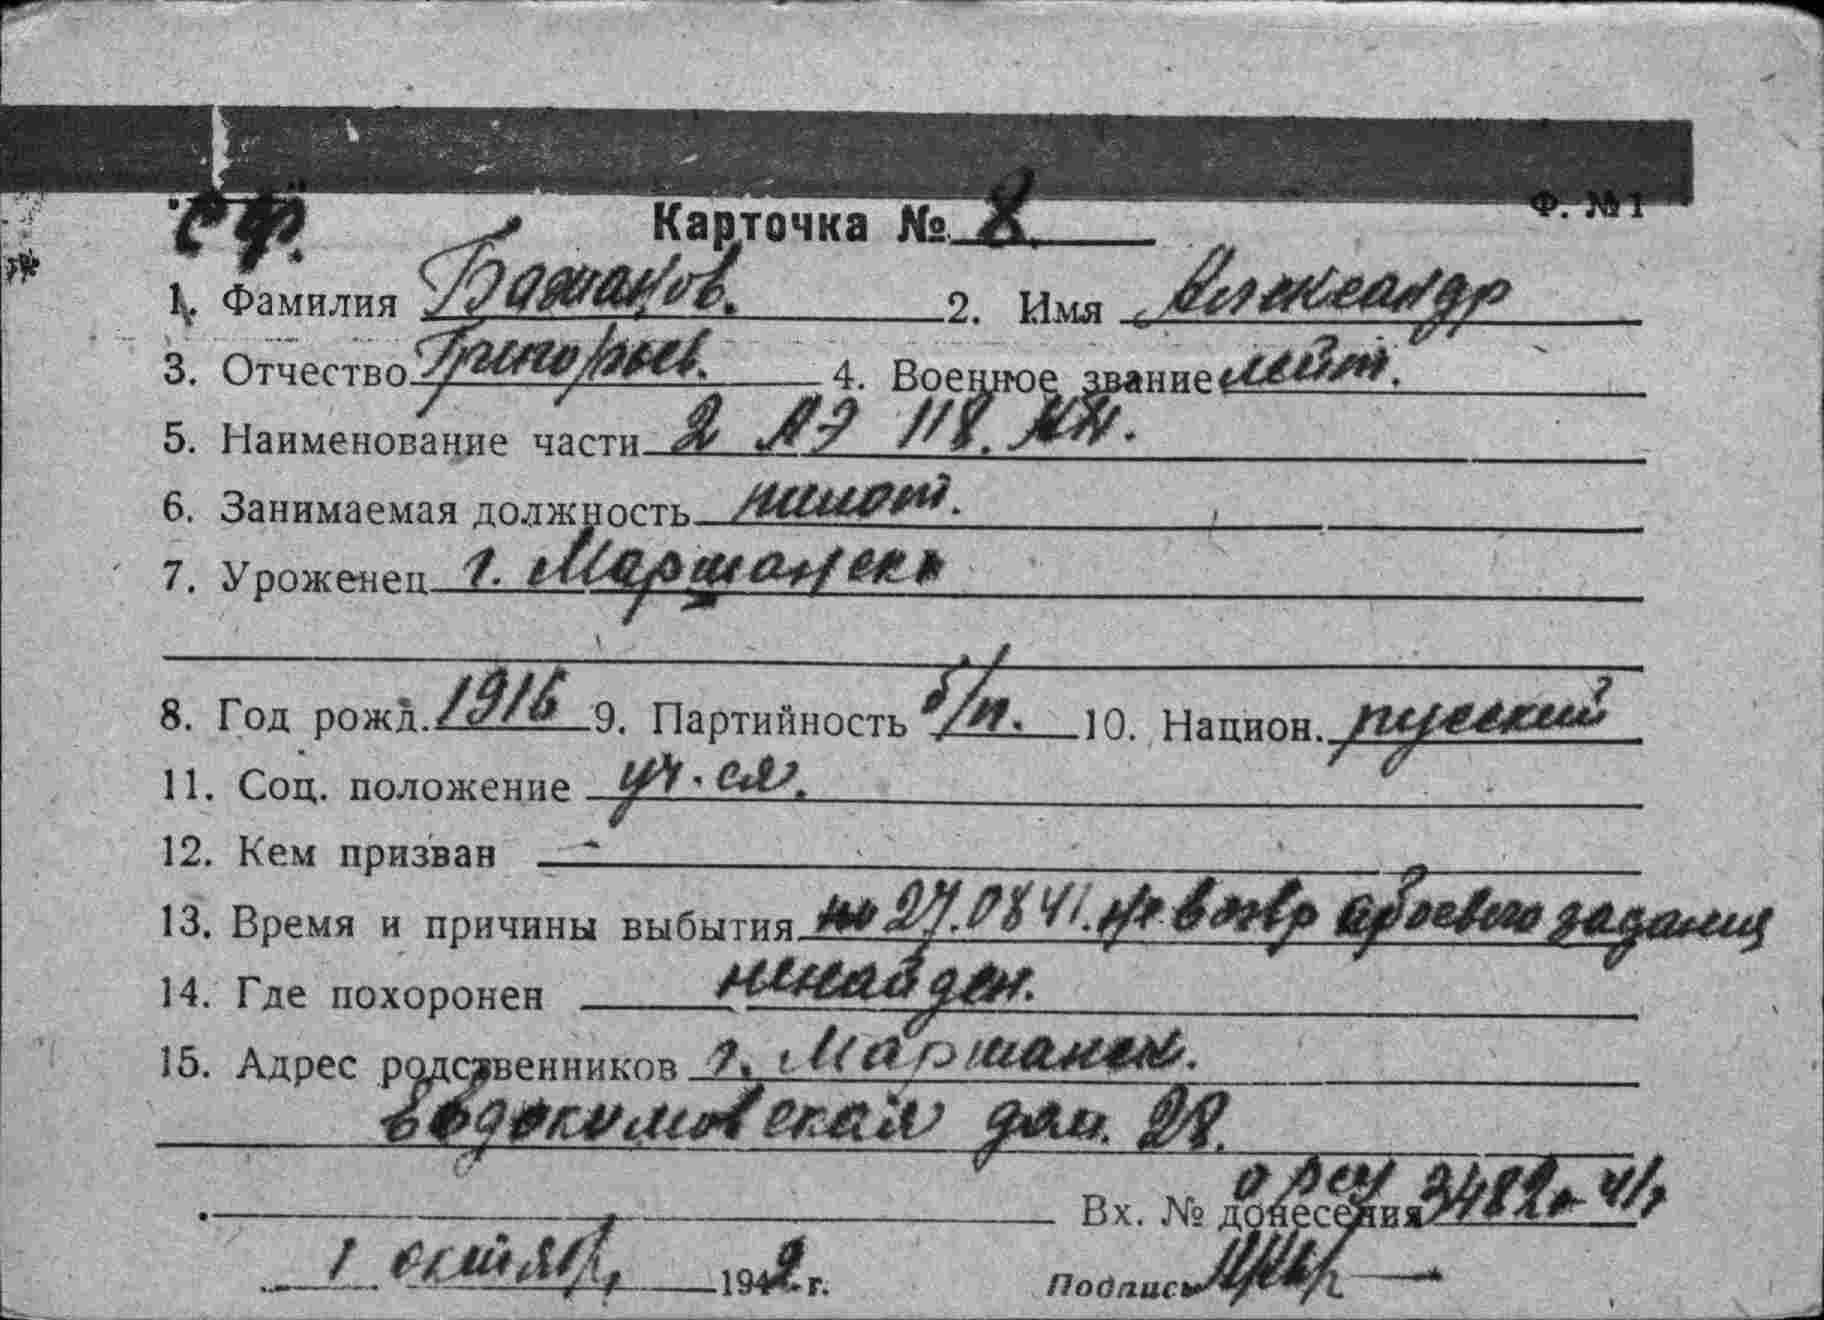 Ф. №1
СФ.
Карточка № 8
1. Фамилия Бажанов. 2. Имя Александр
3. Отчество Григорьев. 4. Военное звание лейт.
5. Наименование части 2 АЭ 118.
6. Занимаемая должность пилот.
7. Уроженец г. Маршанск
8. Год рожд. 1916 9. Партийность б/п. 10. Национ. русский
11. Соц. положение
12. Кем призван —
13. Время и причины выбытия 27.08 41. не возвр с боевого задания
14. Где похоронен ненайден.
15. Адрес родственников г. Маршанск.
Евдокимовская дом. 28.
Вх. № донесения 3482
1 октября 1942 г.
Подпись